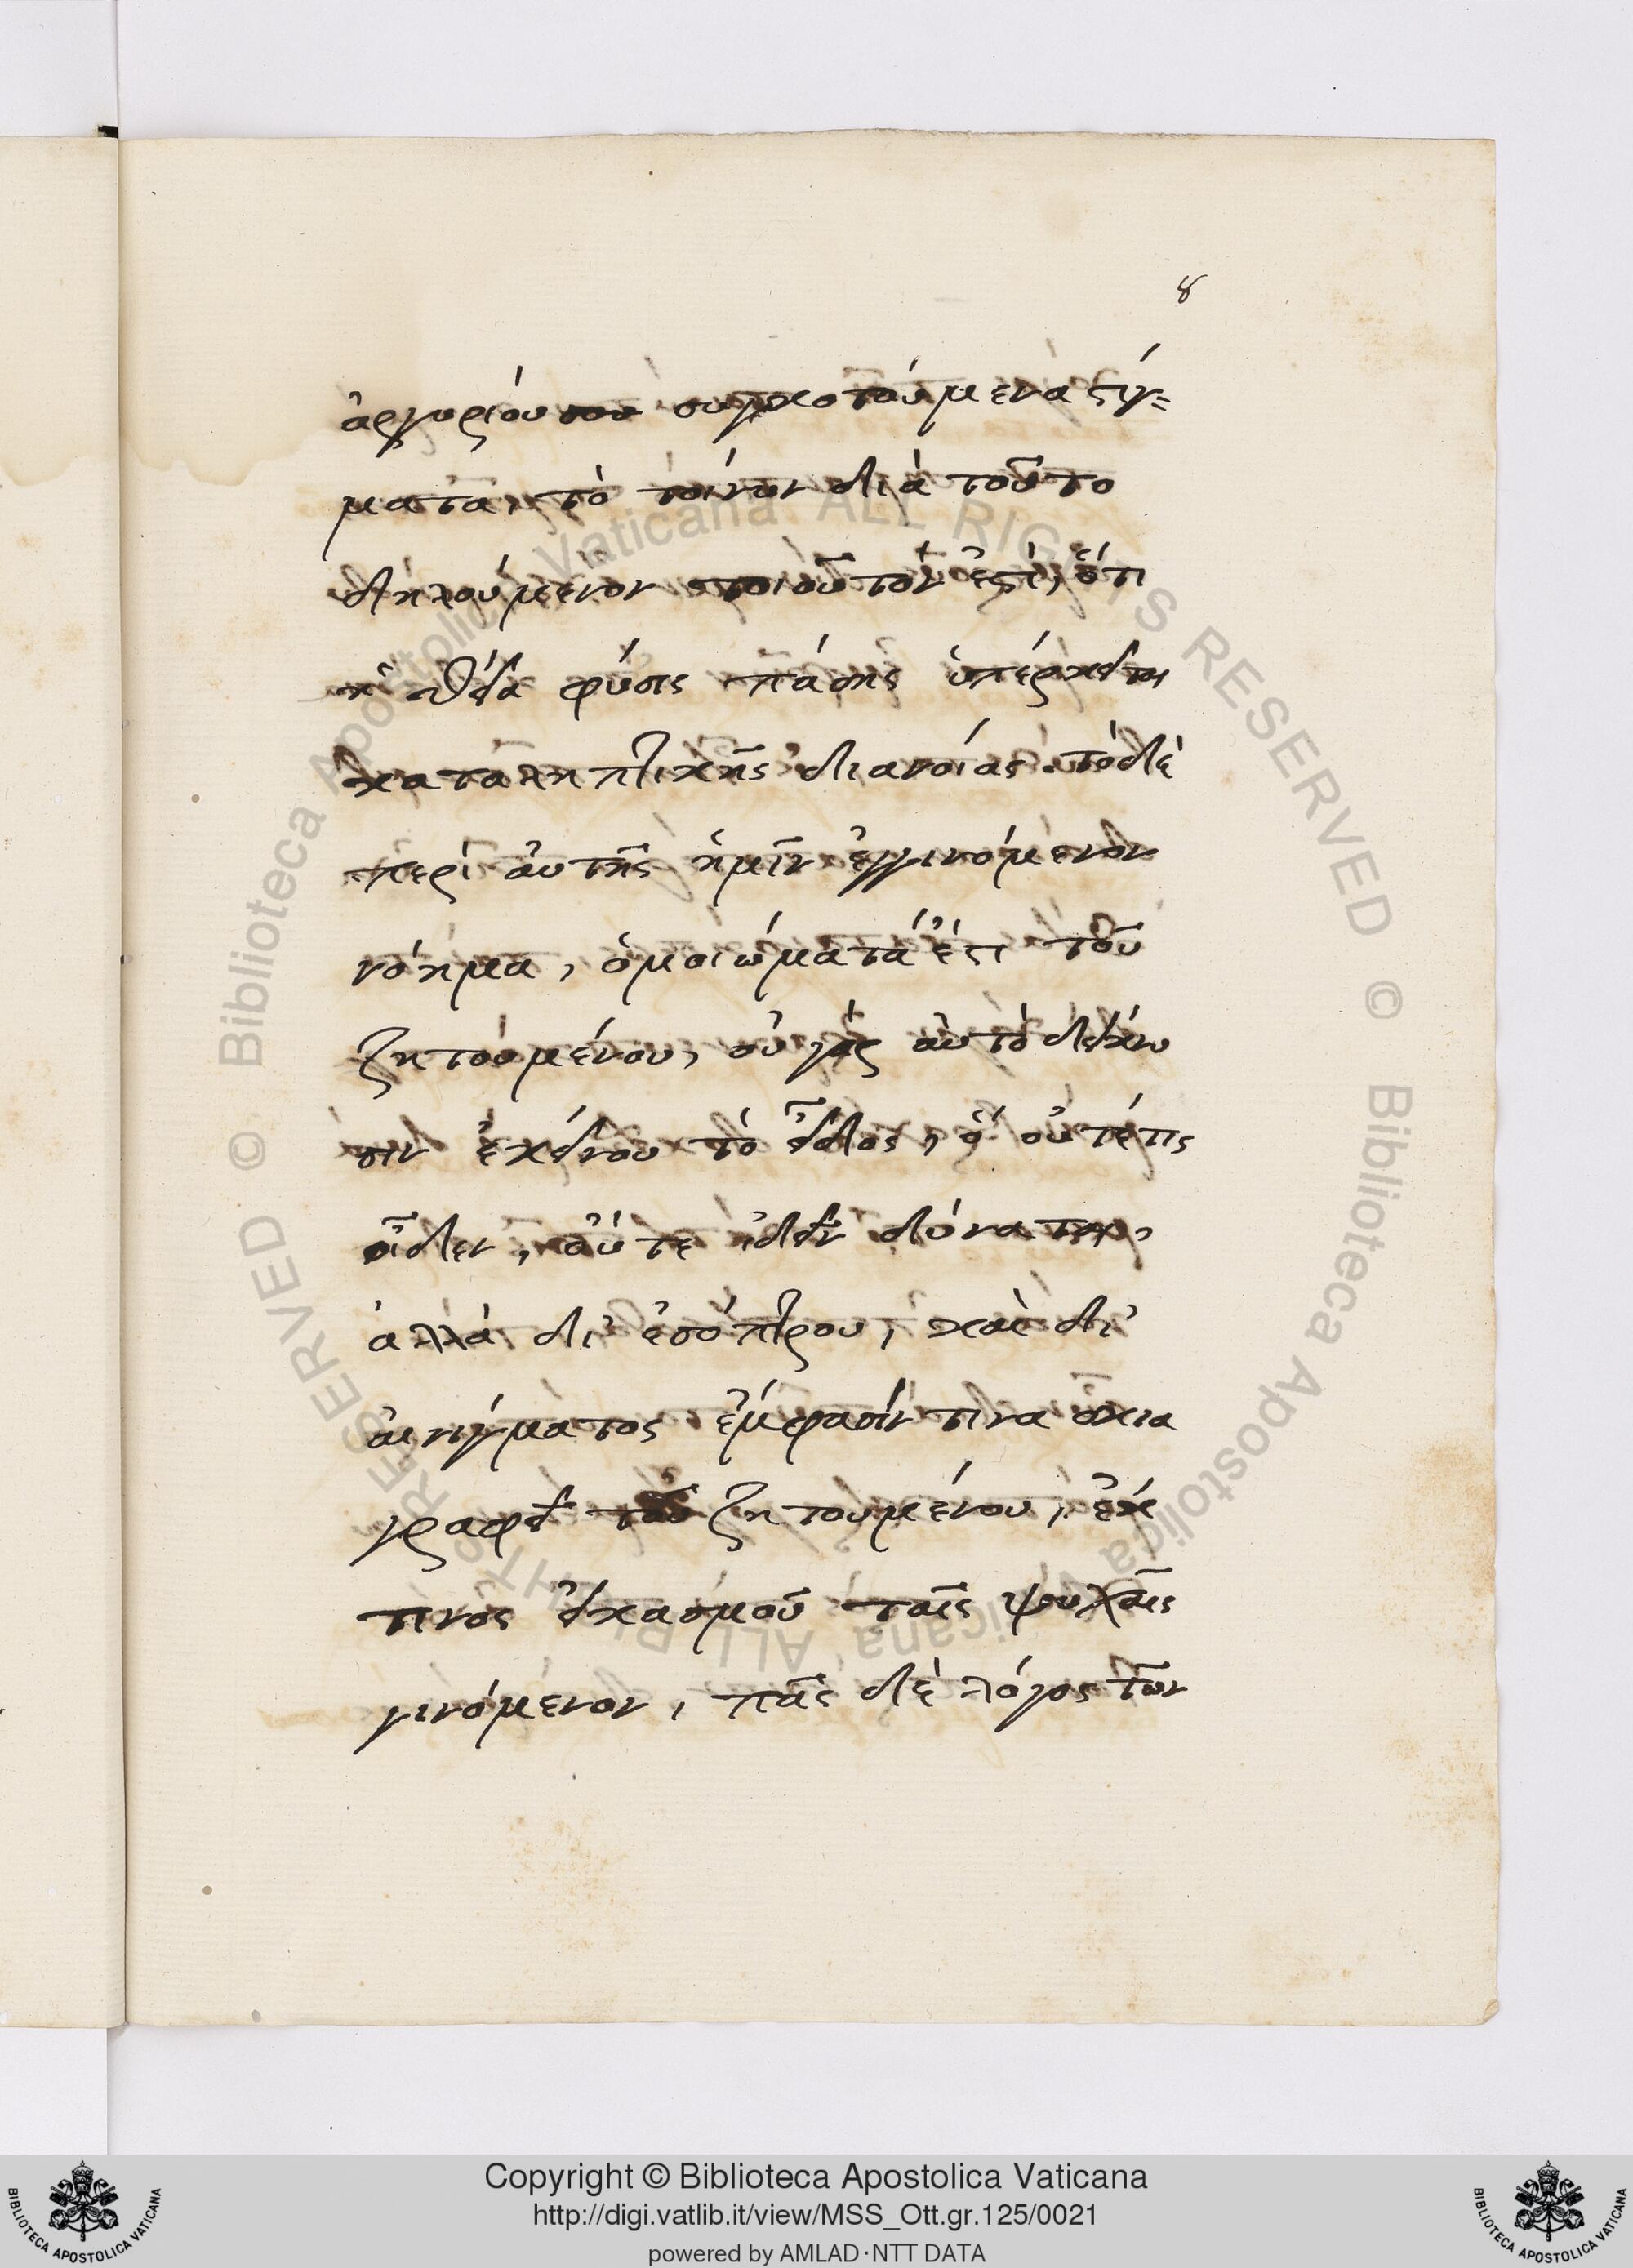 8
ἀργυρίου που συγκοτούμενα στίγ=
ματα, τὸ τοίνυν διὰ τοῦτο
δηλούμενον τοιοῦτόν ἐστι, ὅτι
ἡ θεία φύσις πάσης ὑπέρκειται
καταληπτικῆς διανοίας. τὸ δὲ
περὶ αὐτῆς ἡμῖν ἐγγινόμενον
νόημα, ὁμοιώματά ἐστι τοῦ
ζητουμένου, οὐ γὰρ αὐτὸ δείκνυ
σιν ἐκείνου τὸ εἶδος, ὃ οὔτέ τις
οἶδεν, οὔτε ἰδεῖν δύναται,
ἀλλὰ δι' ἐσόπτρου, καὶ δι'
αἰνίγματος ἐμφασίν τινα σκια
γραφεῖ τοῦ ζητουμένου, ἐκ
τινος εἰκασμοῦ ταῖς ψυχαῖς
γινόμενον, πᾶς δὲ λόγος τῶν
© Biblioteca Apostolica Vaticana ALL RIGHTS RESERVED
© Biblioteca Apostolica Vaticana ALL RIGHTS RESERVED
Copyright © Biblioteca Apostolica Vaticana
http://digi.vatlib.it/view/MSS_Ott.gr.125/0021
powered by AMLAD·NTT DATA
BIBLIOTECA APOSTOLICA VATICANA
BIBLIOTECA APOSTOLICA VATICANA